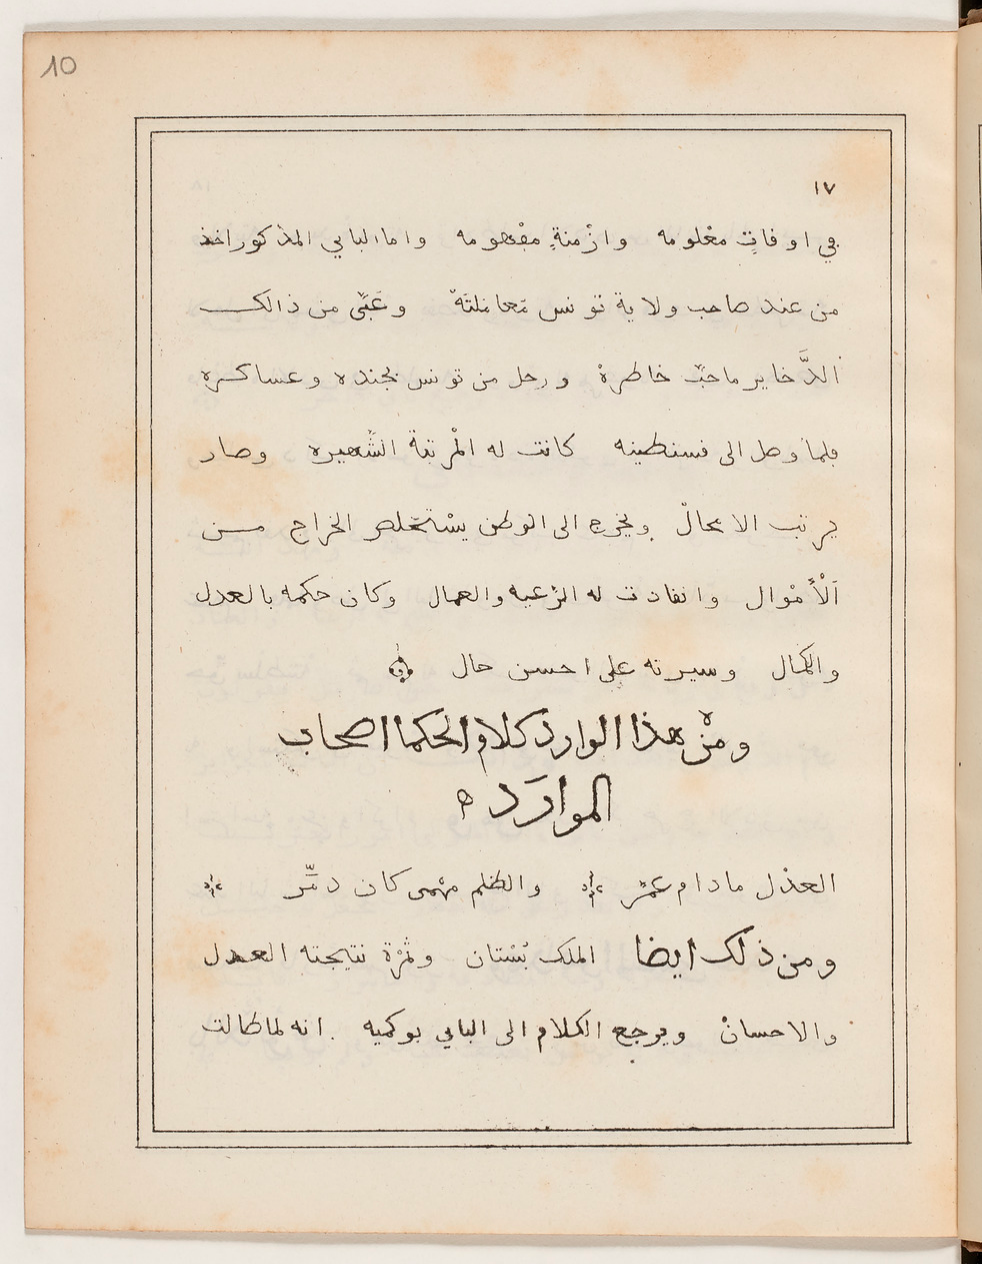 10
١٧
في اوقاتٍ معْلومه وازْمنةٍ مفْهومه واما الباي المذكور اخذ
من عند صاحب ولاية تونس مَعامَلتَهْ وعَبَّى من ذالك
الدَّخاير ماحبّ خاطرهْ ورحل من تونس بجنده وعساكره
فلما وصل الى قسنطينه كانت له الْمرتبة الشّهيره وصار
يرتب الامحالْ ويخرج الى الوطن يسْتخلص الخراج من
اَلْأمْوال وانقادت له الرّعيه والعمال وكان حكمه بالعدل
والكمال وسيرته على احسن حال
ومنْ هذا الوارد كلام الحكما اصحاب
الموارَد ه
العدْل مادام عمّر والظلم مهْمى كان دمَّر
ومن ذلك ايضا الملك بُسْتان وثمرْة نتيجته العدل
والاحسانْ ويرجع الكلام الى الباي بوكميه انه لما طالت